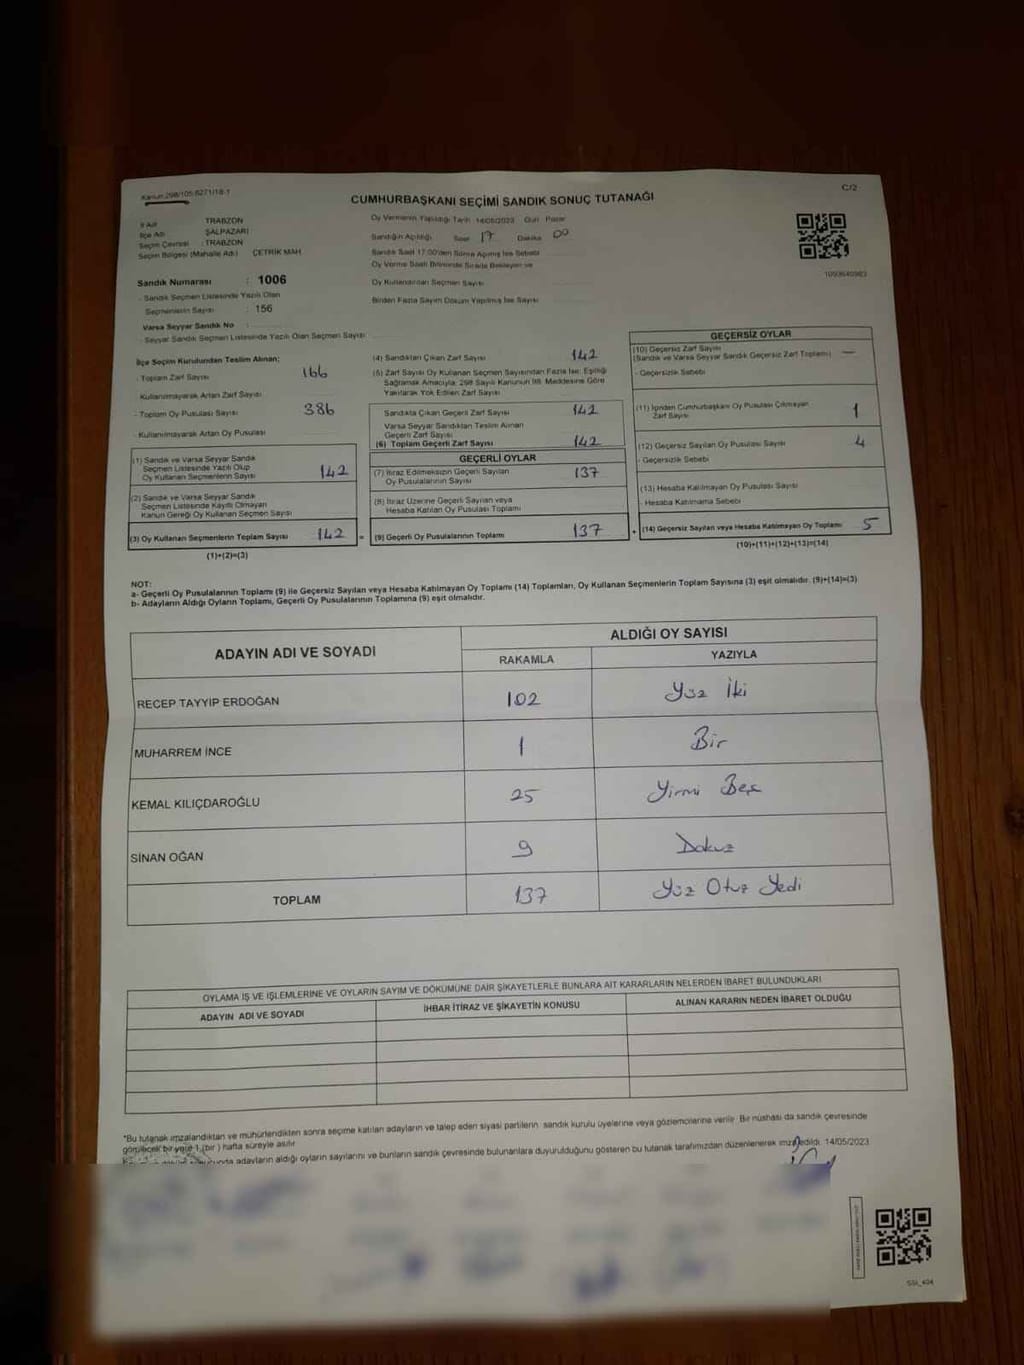 Kanun:298/105-6271/18-1
C/2
CUMHURBAŞKANI SEÇİMİ SANDIK SONUÇ TUTANAĞI
İl Adı : TRABZON
İlçe Adı : ŞALPAZARI
Seçim Çevresi : TRABZON
Seçim Bölgesi (Mahalle Adı) : ÇETRİK MAH
Sandık Numarası : 1006
- Sandık Seçmen Listesinde Yazılı Olan
Seçmenlerin Sayısı : 156
Varsa Seyyar Sandık No :
- Seyyar Sandık Seçmen Listesinde Yazılı Olan Seçmen Sayısı
Oy Vermenin Yapıldığı Tarih 14/05/2023 Gün Pazar
Sandığın Açıldığı Saat 17 Dakika 00
Sandık Saat 17:00'den Sonra Açılmış İse Sebebi
Oy Verme Saati Bitiminde Sırada Bekleyen ve
Oy Kullandırılan Seçmen Sayısı
Birden Fazla Sayım Döküm Yapılmış İse Sayısı
1093640983
İlçe Seçim Kurulundan Teslim Alınan:
- Toplam Zarf Sayısı 166
Kullanılmayarak Artan Zarf Sayısı
- Toplam Oy Pusulası Sayısı 386
- Kullanılmayarak Artan Oy Pusulası
(1) Sandık ve Varsa Seyyar Sandık
Seçmen Listesinde Yazılı Olup
Oy Kullanan Seçmenlerin Sayısı 142
(2) Sandık ve Varsa Seyyar Sandık
Seçmen Listesinde Kayıtlı Olmayan
Kanun Gereği Oy Kullanan Seçmen Sayısı
(3) Oy Kullanan Seçmenlerin Toplam Sayısı 142 =
(1)+(2)=(3)
(4) Sandıktan Çıkan Zarf Sayısı 142
(5) Zarf Sayısı Oy Kullanan Seçmen Sayısından Fazla İse; Eşitliği
Sağlamak Amacıyla, 298 Sayılı Kanunun 98. Maddesine Göre
Yakılarak Yok Edilen Zarf Sayısı
Sandıkta Çıkan Geçerli Zarf Sayısı 142
Varsa Seyyar Sandıktan Teslim Alınan
Geçerli Zarf Sayısı
(6) Toplam Geçerli Zarf Sayısı 142
GEÇERLİ OYLAR
(7) İtiraz Edilmeksizin Geçerli Sayılan
Oy Pusulalarının Sayısı 137
(8) İtiraz Üzerine Geçerli Sayılan veya
Hesaba Katılan Oy Pusulası Toplamı
(9) Geçerli Oy Pusulalarının Toplamı 137 +
GEÇERSİZ OYLAR
(10) Geçersiz Zarf Sayısı
(Sandık ve Varsa Seyyar Sandık Geçersiz Zarf Toplamı) —
- Geçersizlik Sebebi
(11) İçinden Cumhurbaşkanı Oy Pusulası Çıkmayan
Zarf Sayısı 1
(12) Geçersiz Sayılan Oy Pusulası Sayısı 4
- Geçersizlik Sebebi
(13) Hesaba Katılmayan Oy Pusulası Sayısı
- Hesaba Katılmama Sebebi
(14) Geçersiz Sayılan veya Hesaba Katılmayan Oy Toplamı 5
(10)+(11)+(12)+(13)=(14)
NOT:
a- Geçerli Oy Pusulalarının Toplamı (9) ile Geçersiz Sayılan veya Hesaba Katılmayan Oy Toplamı (14) Toplamları, Oy Kullanan Seçmenlerin Toplam Sayısına (3) eşit olmalıdır. (9)+(14)=(3)
b- Adayların Aldığı Oyların Toplamı, Geçerli Oy Pusulalarının Toplamına (9) eşit olmalıdır.
ADAYIN ADI VE SOYADI ALDIĞI OY SAYISI
RAKAMLA YAZIYLA
RECEP TAYYİP ERDOĞAN 102 Yüz İki
MUHARREM İNCE 1 Bir
KEMAL KILIÇDAROĞLU 25 Yirmi Beş
SİNAN OĞAN 9 Dokuz
TOPLAM 137 Yüz Otuz Yedi
OYLAMA İŞ VE İŞLEMLERİNE VE OYLARIN SAYIM VE DÖKÜMÜNE DAİR ŞİKAYETLERLE BUNLARA AİT KARARLARIN NELERDEN İBARET BULUNDUKLARI
ADAYIN ADI VE SOYADI İHBAR İTİRAZ VE ŞİKAYETİN KONUSU ALINAN KARARIN NEDEN İBARET OLDUĞU
*Bu tutanak imzalandıktan ve mühürlendikten sonra seçime katılan adayların ve talep eden siyasi partilerin sandık kurulu üyelerine veya gözlemcilerine verilir. Bir nüshası da sandık çevresinde
görülecek bir yere 1 (bir) hafta süreyle asılır.
adayların aldığı oyların sayılarını ve bunların sandık çevresinde bulunanlara duyurulduğunu gösteren bu tutanak tarafımızdan düzenlenerek imza edildi. 14/05/2023
SSI_404